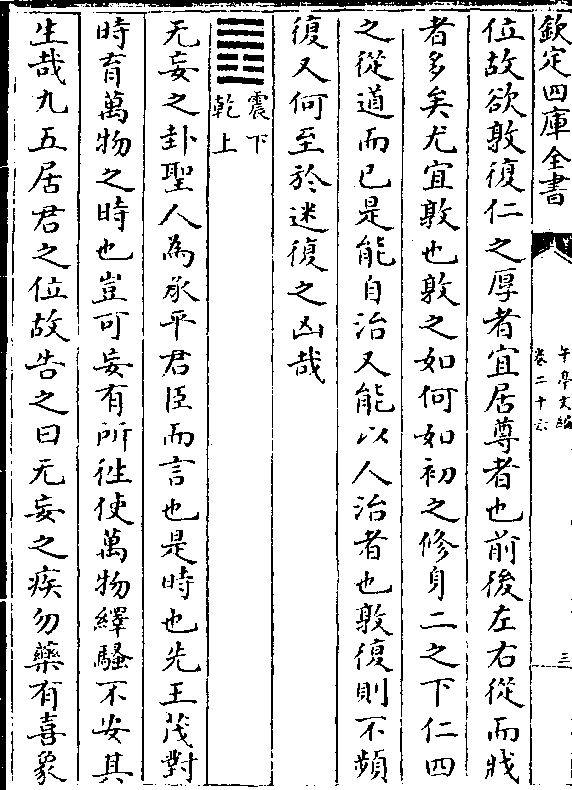 欽定四庫全書
午亭文編
卷二十六
三
位故欲敦復仁之厚者宜居尊者也前後左右從而戕
者多矣尤宜敦也敦之如何如初之修身二之下仁四
之從道而已是能自治又能以人治者也敦復則不頻
復又何至於迷復之凶哉
震下
乾上
无妄之卦聖人為承平君臣而言也是時也先王茂對
時育萬物之時也豈可妄有所徃使萬物繹騷不安其
生哉九五居君之位故告之曰无妄之疾勿藥有喜象